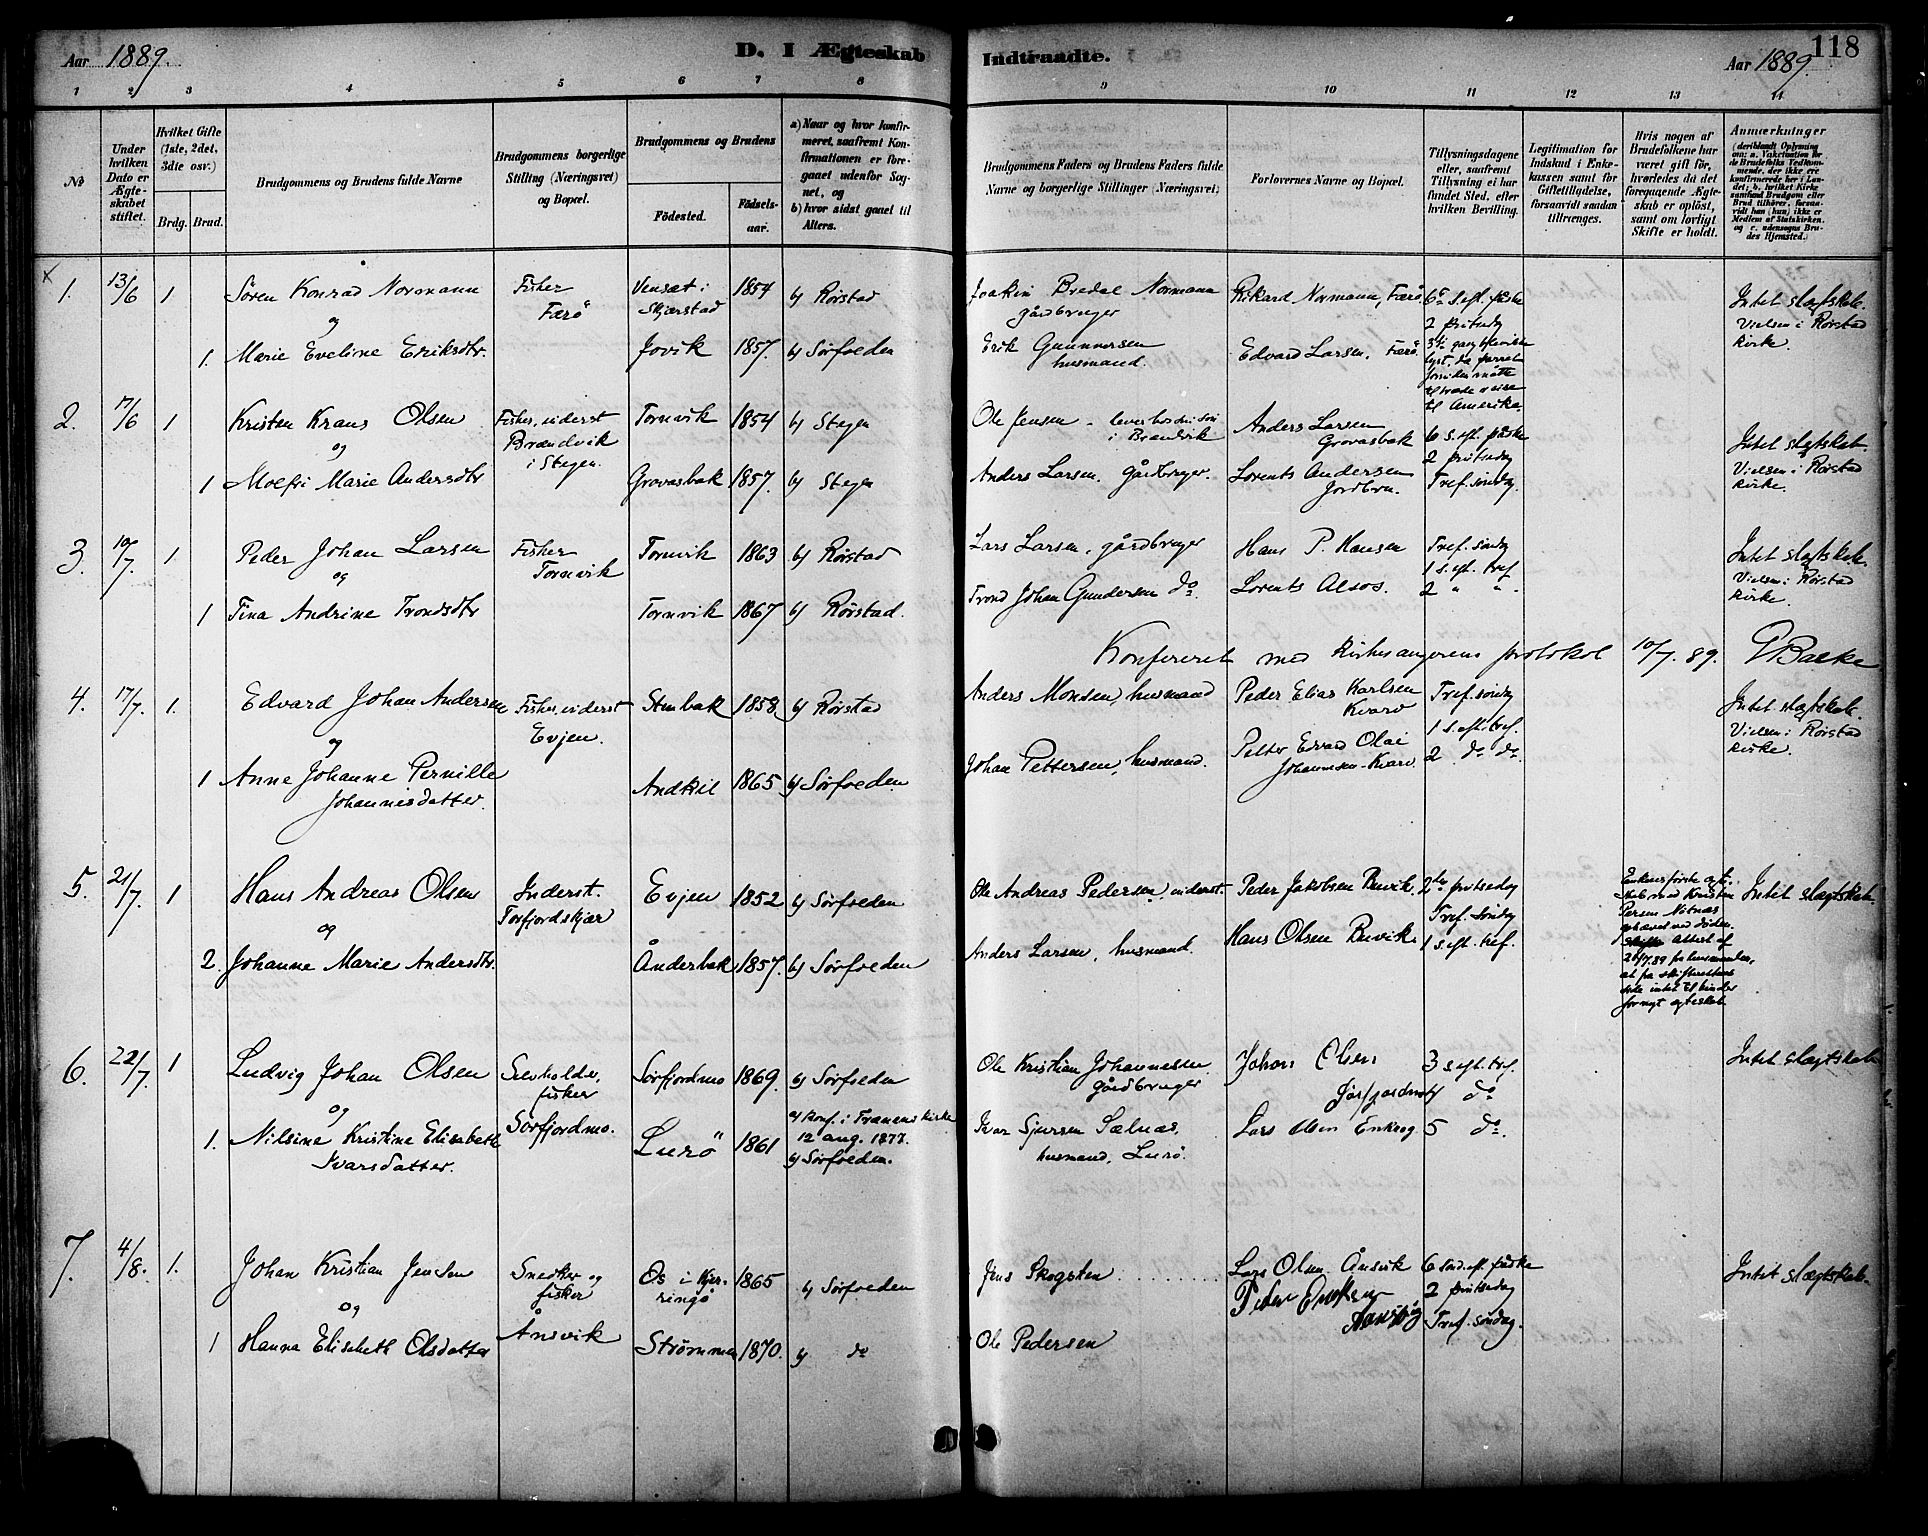 Aar 1889.
D. I Ægteskab
Indtraadte.
Aar 1889.
118
1 2 3 4 5 6 7 8 9 10 11 12 13 14
No
Under hvilken Dato er Ægteskabet stiftet.
Hvilket Gifte (1ste, 2det, 3die osv.)
Brdg. Brud.
Brudgommens og Brudens fulde Navne
Brudgommens borgerlige Stilling (Næringsvei) og Bopæl.
Brudgommens og Brudens
Födested.
Födselsaar.
a) Naar og hvor konfirmeret, saafremt Konfirmationen er foregaaet udenfor Sognet, og
b) hvor sidst gaaet til Alters.
Brudgommens Faders og Brudens Faders fulde Navne og borgerlige Stillinger (Næringsvei)
Forlovernes Navne og Bopæl.
Tillysningsdagene eller, saafremt Tillysning ei har fundet Sted, efter hvilken Bevilling.
Legitimation for Indskud i Enkekassen samt for Giftetilladelse, forsaavidt saadan tiltrænges.
Hvis nogen af Brudefolkene har været gift før, hvorledes da det foregaaende Ægteskab er oplöst, samt om lovligt Skifte er holdt.
Anmærkninger (deriblandt Oplysning om: a. Vakcination for de Brudefolks Vedkommende, der ikke ere konfirmerede her i Landet; b. hvilket Kirkesamfund Brudgom eller Brud tilhörer, forsaavidt han (hun) ikke er Medlem af Statskirken, og c. udensogns Brudes Hjemsted.)
1. 13/6 1 Søren Konrad Normann Fisker Færö Vensæt i Skjærstad 1854 b) Rörstad Joakim Bredal Normann gårdbruger Rikard Normann, Færö 6te S. eft. påske 2 pintsedag Intet slægtskab. Vielsen i Rörstad kirke.
og
1. Marie Eveline Eriksdtr. Jovik 1857. b) Sørfolden Erik Gunnersen husmand. Edvard Larsen, Færö. til Amerika.
2. 17/6 1 Kristen Kraus Olsen Fisker, inderst Brændvik i Stegen. Tornvik 1854 b) Stegen Ole Jensen i Brændvik Anders Larsen Grovasbak 6 s. eft. påske 2 pintsedag Intet slægtskab. Vielsen i Rörstad kirke.
og
1 Marie Andersdtr Grovasbak 1857. b) Stegen Anders Larsen, gårdbruger. Lorents Andersen Tref. söndag.
3. 10/7. 1 Peder Johan Larsen Fisker Tornvik Tornvik 1863 b) Rörstad Lars Larsen, gårdbruger Hans P. Hansen Tref. söndag 1 s. eft. tref Intet slægtskab. Vielsen i Rörstad kirke.
og
1 Tina Andrine Trondsdtr Tornvik 1867 b) Rörstad. Trond Johan Gundersen do. Lorents Alsos. 2 " ".
Konfereret med kirkesangerens protokol 10/7. 89. G Balke
4. 17/7. 1. Edvard Johan Andersen Fisker, inderst Evjen. Stenbak 1858. b) Rörstad Anders Monsen, husmand Peder Elias Karlsen Kvarv Tref. söndag 1 s. eft. tref. Intet slægtskab. Vielsen i Rörstad kirke.
og
1 Anne Johanne Pernille Johannisdatter. Andkil 1865 b) Sørfolden Johan Pettersen, husmand. Petter Edvard Olai Johannesen - Kvarv 2 do do.
5. 21/7. 1 Hans Andreas Olsen Inderst. Torfjordskjær Evjen 1852 b) Sørfolden Ole Andreas Pedersen, inderst. Peder Jakobsen Buvik. 2den pintsedag Tref. söndag Enkens første ægteskab med Kristen Persen Nötnæs ophævet ved döden. Attest af 20/7.89 fra lensmanden, at fra skifterettens side intet til hinder for nyt ægteskab. Intet slægtskab
og
2. Johanne Marie Andersdtr. Ånderbak 1857. b) Sørfolden Anders Larsen, husmand. Hans Olsen Buvik. 1 s. eft. tref.
6. 22/7. 1 Ludvig Johan Olsen Selvholder, fisker Sørfjordmo. Sørfjordmo 1869. b) Sørfolden Ole Kristian Johannessen gårdbruger Johan Olsen Sørfjordmo 3 s. eft. tref. 4 do Intet slægtskab
og
1. Nilsine Kristine Elisabeth Ivarsdatter. Lurö 1861 a) Konf. i Trænens kirke 12 aug. 1877. b) Sørfolden. Ivar Sjursen Sælnæs, husmand, Lurö. Lars Olsen Enkrog 5 do.
7. 4/8. 1. Johan Kristian Jensen Snedker og fisker Ånsvik Os i Kjerringö 1865 b) Sørfolden Jens Skogsten Lars Olsen Ånsvik 6 sönd. eft. påske 2 pintsedag Intet slægtskab.
og
1 Hanna Elisabeth Olsdatter Strømmen 1870. b) do Ole Pedersen Peder Tref. söndag.